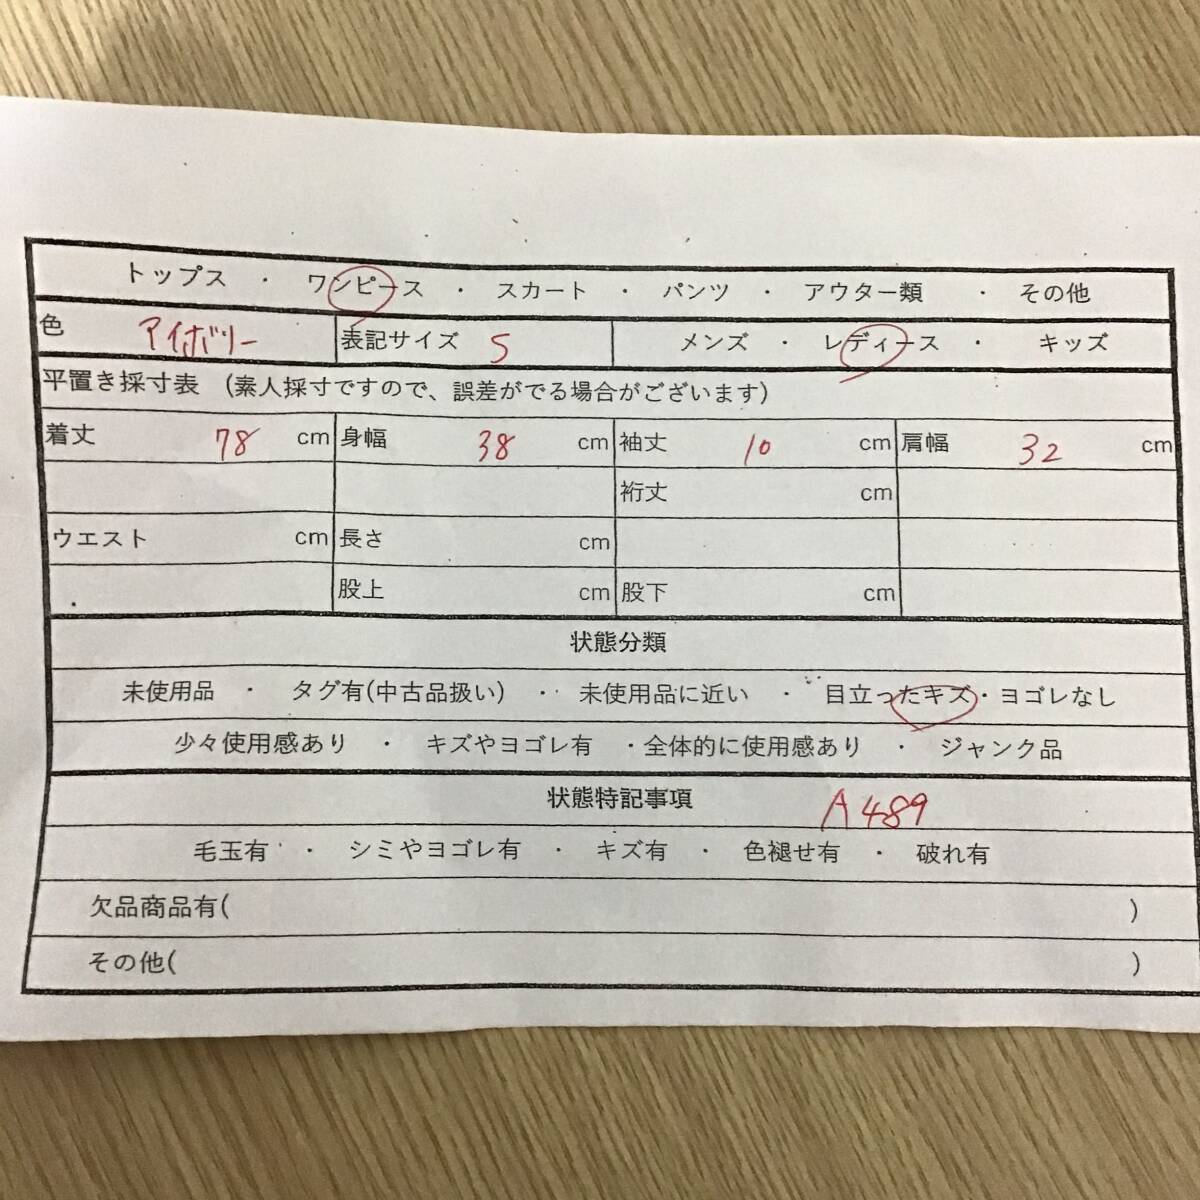 トップス ・ ワンピース ・ スカート ・ パンツ ・ アウター類 ・ その他
色 アイボリー 表記サイズ S メンズ ・ レディース ・ キッズ
平置き採寸表 (素人採寸ですので、誤差がでる場合がございます)
着丈 78 cm 身幅 38 cm 袖丈 10 cm 肩幅 32 cm
裄丈 cm
ウエスト cm 長さ cm
股上 cm 股下 cm
状態分類
未使用品 ・ タグ有(中古品扱い) ・ 未使用品に近い ・ 目立ったキズ・ヨゴレなし
少々使用感あり ・ キズやヨゴレ有 ・全体的に使用感あり ・ ジャンク品
状態特記事項 A489
毛玉有 ・ シミやヨゴレ有 ・ キズ有 ・ 色褪せ有 ・ 破れ有
欠品商品有( )
その他( )